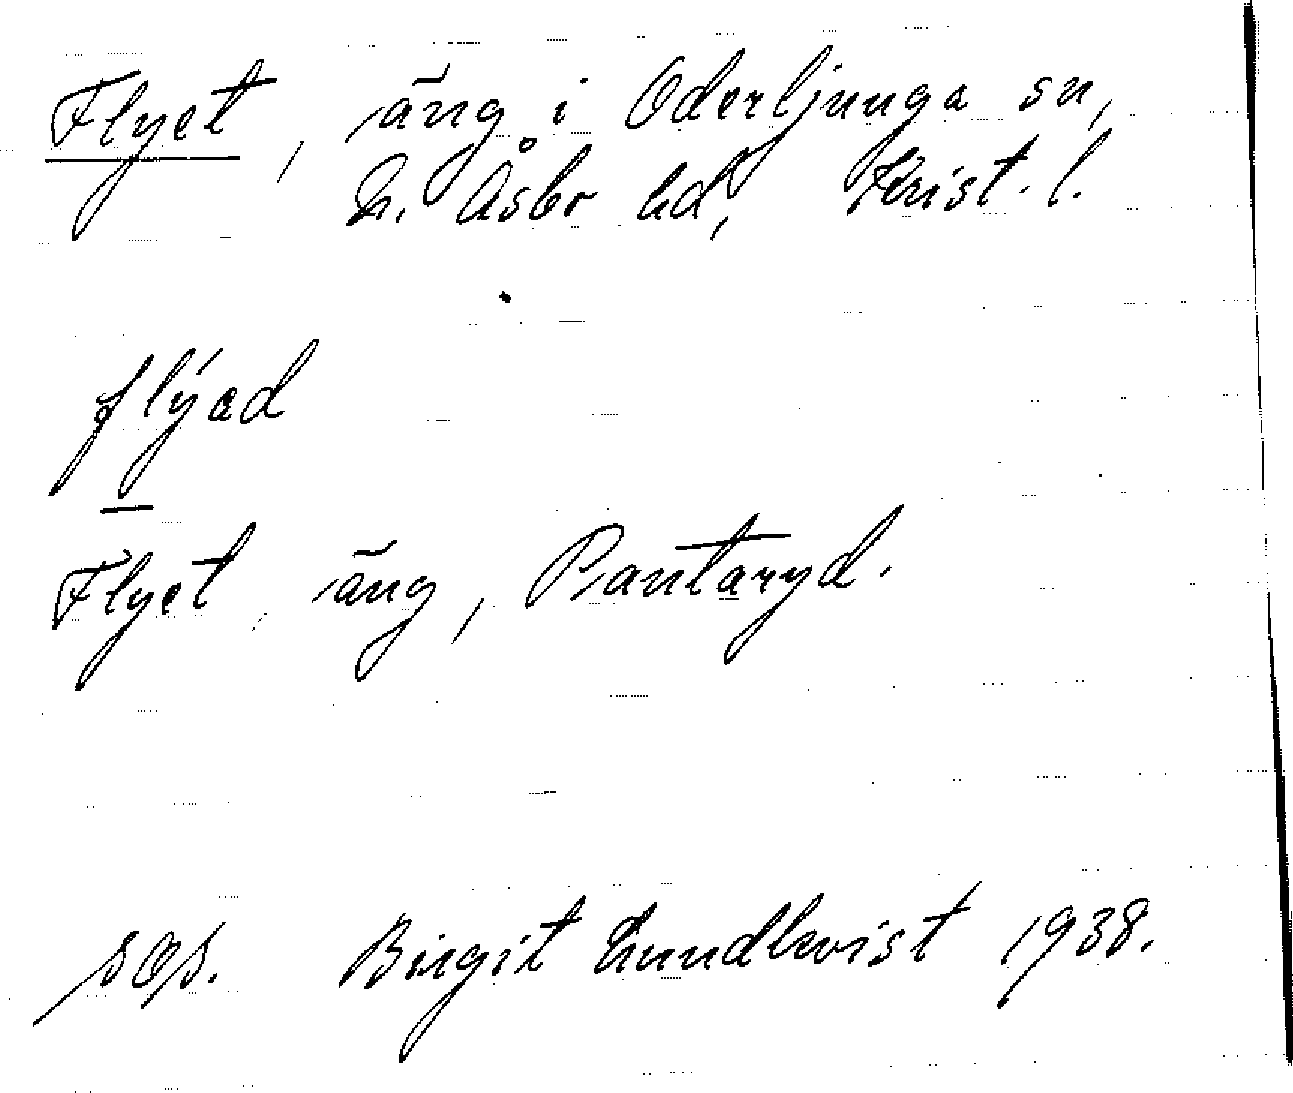 Flyet, äng i Oderljunga sn,
N. Åsbo hd, Krist. l.
flýad
Flyet, äng, Pantaryd.
Birgit Lundkvist 1938.